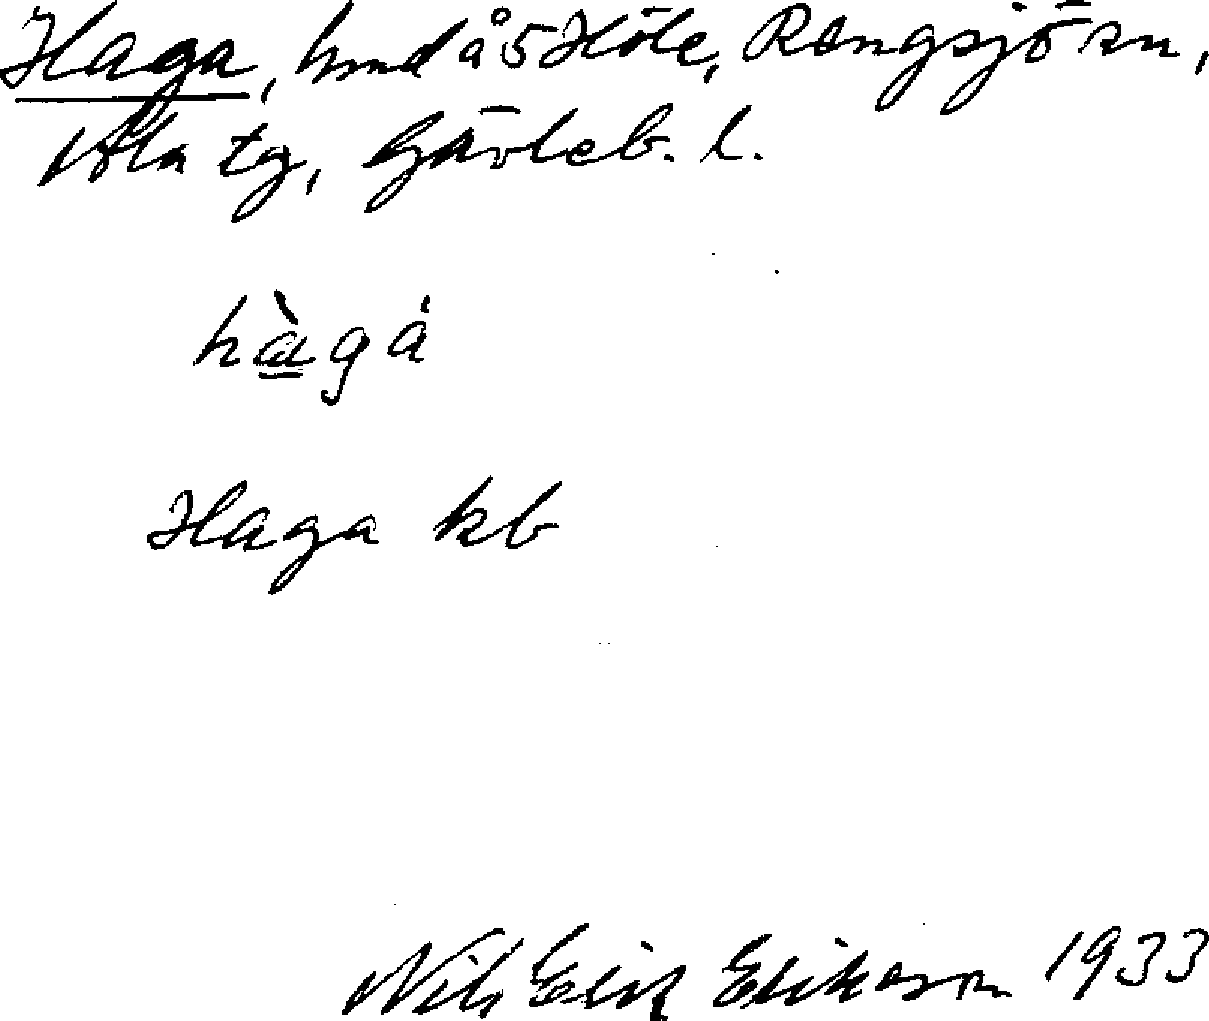 Haga, hmd å 5 Höle, Rengsjö sn,
Ala tg, Gävleb. l.
hàgá
Haga kb
Nils Erik Erikson 1933